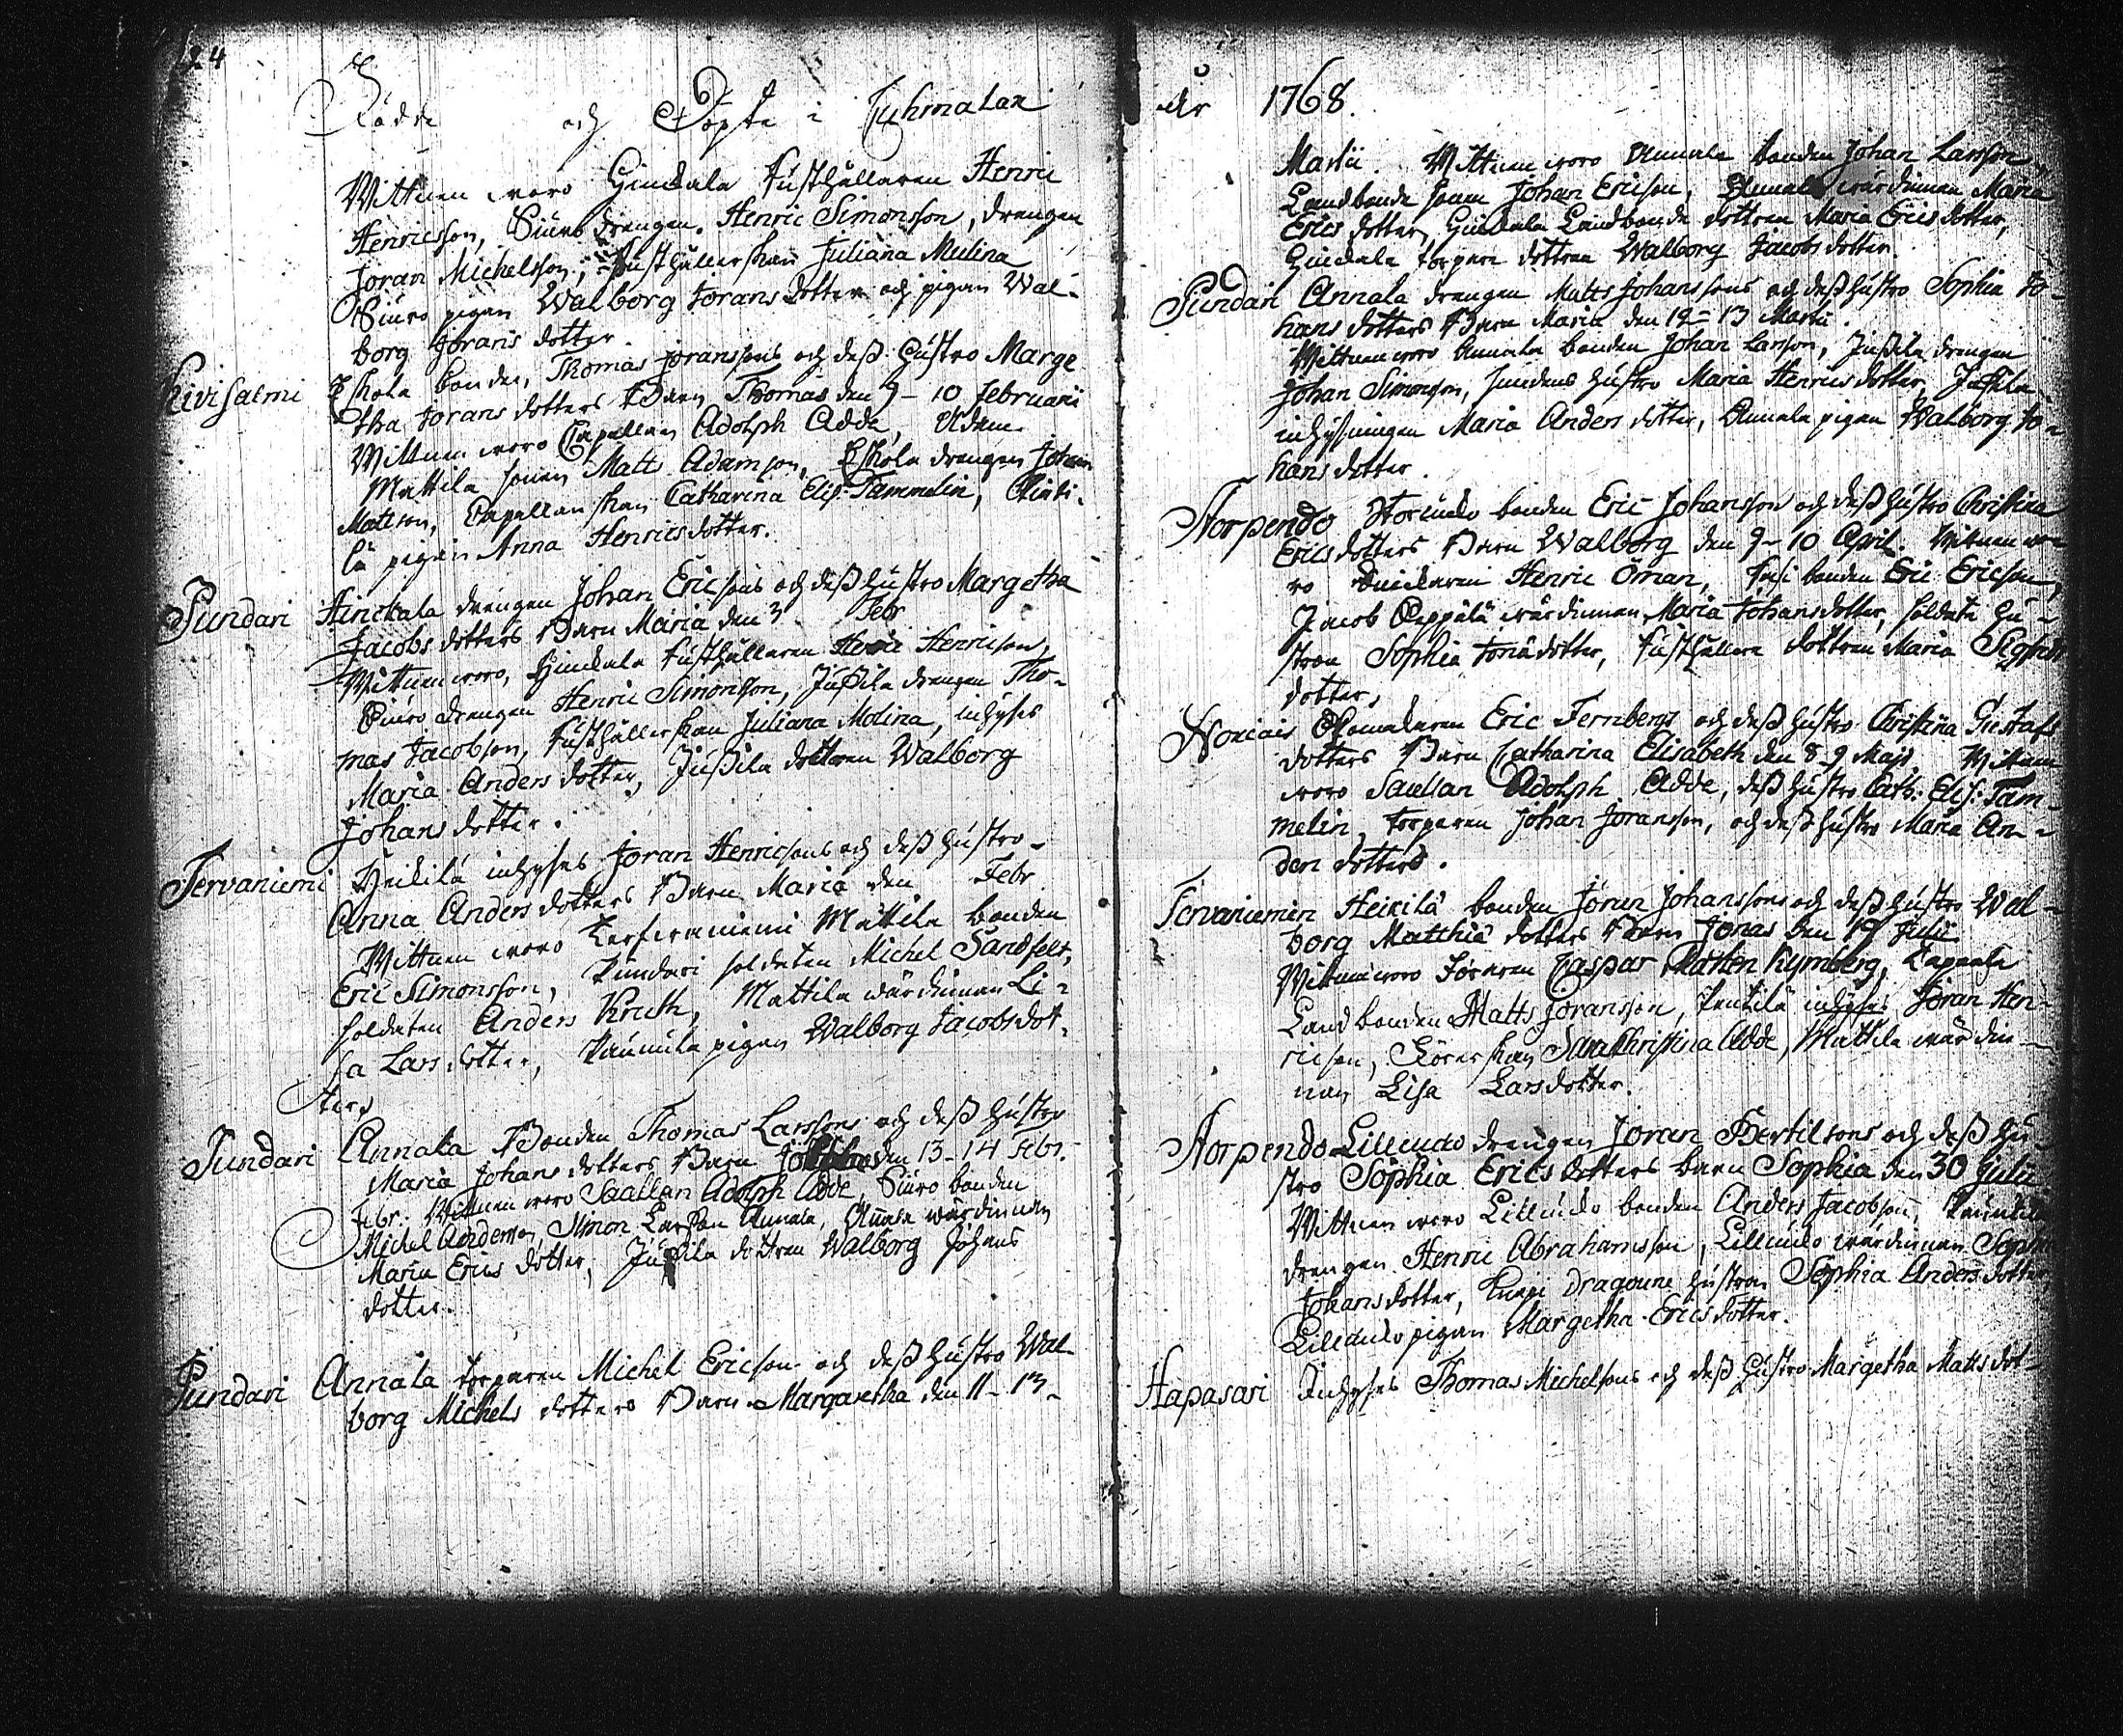 124
Födde och Döpte i Luhmalax
Wittnen woro Hinckala Rusthållaren Henric
Henricsson, Siuro drengen Henric Simonsson, drengen
Jöran Michelsson, Rusthållerskan Juliana Mulina
Siuro pigan Walborg Jörans dotter och pigan Wal-
borg Jörans dotter.
Kivisalmi Eskola bonden, Thomas Joranssons och dess hustro Marge
tha Jörans dotters Barn Thomas den 9-10 Februarii
Wittnen woro Capellan Adolph Adde,
Mattila sonen Matts Adamson, Eskola drengen Johan
Mattson, Capellanskan Catharina Elis. Tammelin,
lä pigan Anna Henricsdotter.
Pundari Hinckala drengen Johan Ericsons och dess hustro Margetha
Jacobs dotters Barn Maria den 3 Febr
Wittnen woro, Hinckala Rusthållaren Henric Henricson,
Siuro drengen Henric Simonsson, Jussila drengen Tho-
mas Jacobson, Rusthållerskan Juliana Molina, inhyses
Maria Anders dotter, Jussila dottren Walborg
Johans dotter.
Tervaniemi Heikilä inhyses Joran Henricsons och dess hustro
Anna Anders dotters Barn Maria den Febr
Wittnen woro Terfwaniemi Mattila bonden
Eric Simonsson, Pundari soldaten Michel Sandfelt,
soldaten Anders Kruth, Mattila wärdinnan Li-
sa Lars dotter, pigan Walborg Jacobsdot-
ter
Pundari Annala Bonden Thomas Larssons och dess hustro
Maria Johans dotters Barn den 13-14 Febr.
Febr. Wittnen woro Saellan Adolph Adde, Siuro bonden
Michel Anderson, Simon Larsson Annala, Annala wärdinnan
Maria Erics dotter, Jussila dottren Walborg Johans
dotter.
Pundari Annala torparen Michel Ericson och dess hustro Wal
borg Michels dotters Barn Margaretha den 11-13
År 1768.
Martii. Wittnen woro Annala bonden Johan Larsson,
Landbonde sonen Johan Ericson, Annala wärdinnan Maria
Erics dotter, Hinckala Landbonde dottren Maria Erics dotter,
Hinckala torpare dottren Walborg Jacobs dotter.
Pundari Annala drengen Matts Johanssons och dess hustro Sophia Jo-
hans dotters Barn Maria den 12-13 Martii.
Wittnen woro Annala bonden Johan Larsson, Jussila drengen
Johan Simonson, hustro Maria Henrics dotter, Jussila
inhysingen Maria Anders dotter, Annala pigan Walborg Jo-
hans dotter.
Storpendo Storicko bonden Eric Johansson och dess hustro Christina
Ericsdotters Barn Walborg den 9-10 April. Witnen wo-
ro Henric Öman, bonden Eric Ericson,
Jacob wärdinnan Maria Johansdotter, soldate hu-
stron Sophia dotter, Rusthållare dottren Maria Sigfrids
dotter,
Eric Fernbergs och dess hustro Christina Gustafs
dotters Barn Catharina Elisabeth den 8-9 Maji. Wittnen
woro Saellan Adolph Adde, dess hustro Cath: Elis: Tam-
melin, torparen Johan Joransson, och dess hustro Maria An-
ders dotter.
Tervaniemin Heikilä bonden Jöran Johanssons och dess hustro Wal-
borg Matthiæ dotters Barn Jonas den 19 Julii
Wittnen woro Caspar Mårten Kymberg,
Landbonden Matts Joransson, inhyses Jöran Hen-
ricson, Sara Christina Adde, Mattila wärdin-
nan Lisa Larsdotter.
Storpendo Lillindo drengen Joran Bertilsons och dess hu-
stro Sophia Erics dotters barn Sophia den 30 Julii
Wittnen woro Lillindo bonden Anders Jacobson,
drengen Henric Abrahamsson, Lillindo wärdinnan Sophia
Johansdotter, dragoune hustron Sophia Andersdotter,
Lillindo pigan Margetha Ericsdotter.
Hapasari Inhyses Thomas Michelsons och dess hustro Margetha Matts dot-